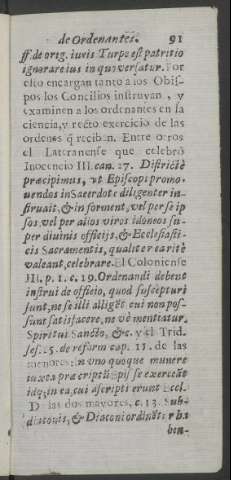 de Ordenantes. 91
ff. de orig. iuris Turpe est patritio
ignorare ius in quo versatur. Por
esto encargan tanto a los Obis-
pos los Concilios instruyan, y
examinen a los ordenantes en sa
ciencia, y recto exercicio de las
ordenes q̃ reciben. Entre otros
el Lateranense que celebrò
Inocencio III. can. 27. Districtè
præcipimus, vt Episcopi promo-
uendos in Sacerdotẽ diligenter in-
struait, & informent, vel per se ip
sos, vel per alios viros idoneos su-
per diuinis officijs, & Ecclesiasti-
cis Sacramentis, qualiter earitè
valeant, celebrare. El Coloniense
III. p. 1. c. 19. Ordenandi debent
instrui de officio, quod suscepturi
sunt, ne se illi alligẽt cui non pos-
sunt satisfacere, ne vẽ mentiatur
Spiritui Sancto, &c. y el Trid.
ses. 5. de reform cap. 11. de las
menores: in vno quoque munere
iuxta præscripti se exerceãt
idq; in ea, cui ascripti erunt Eccl.
De las dos mayores, c. 13. Sub-
diaconis, & Diaconi ordinẽt
ben-